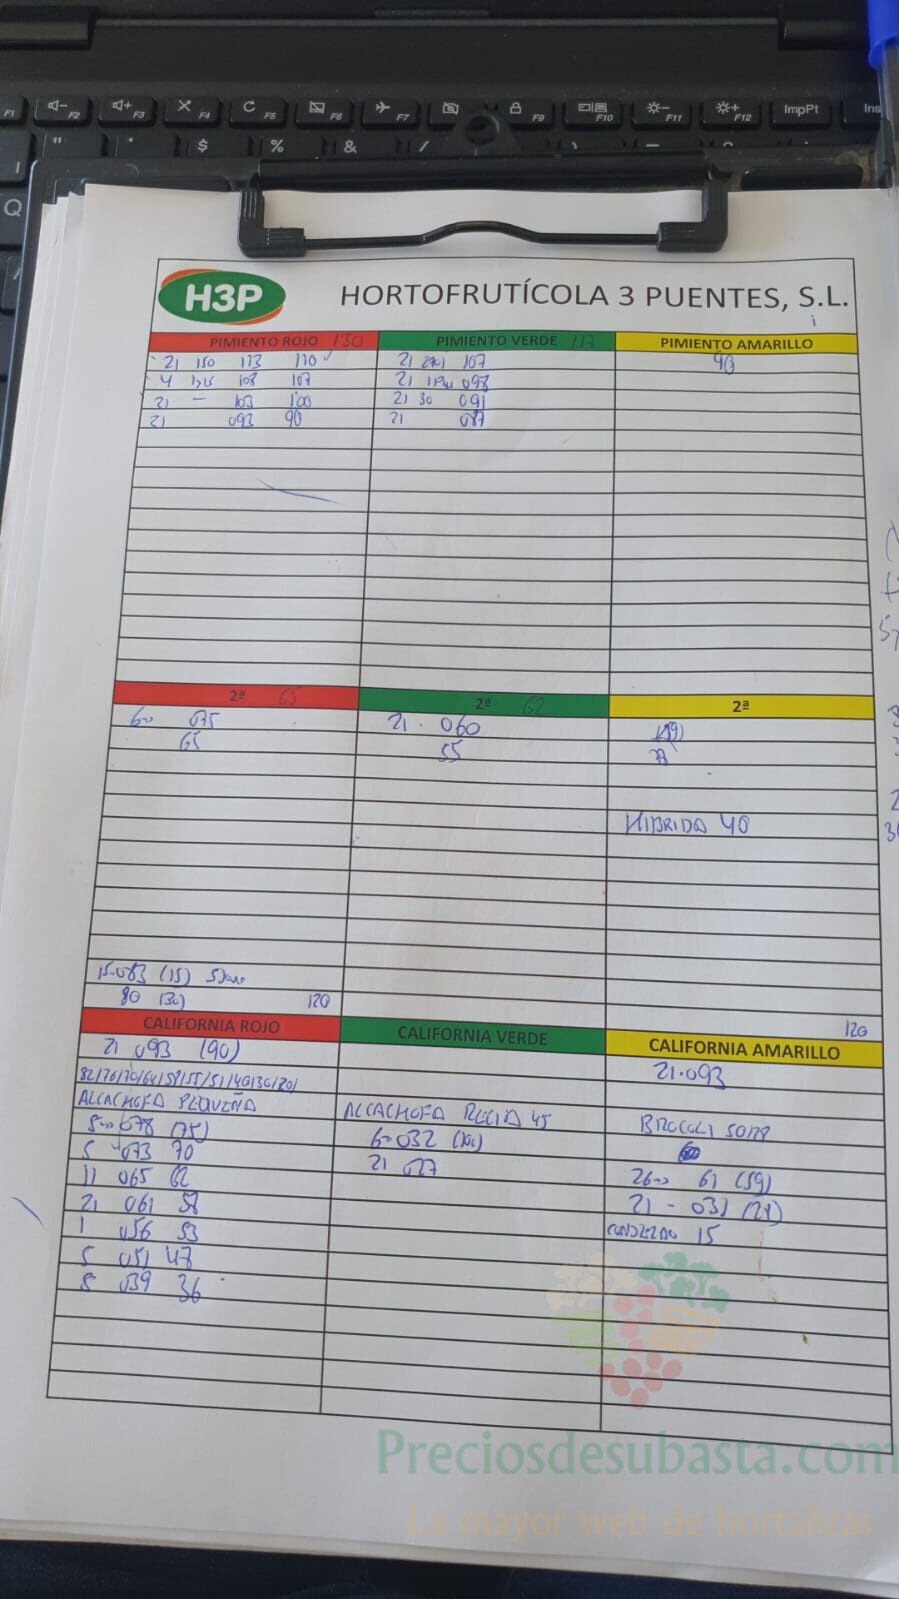 F1 F2 F3 F4 F5 F6 F7 F9 F10 F11 F12 ImpPt Ins
" $ % & /
Q
H3P HORTOFRUTÍCOLA 3 PUENTES, S.L.
PIMIENTO ROJO 130 PIMIENTO VERDE 117 PIMIENTO AMARILLO
21 150 113 110 21 107 90
4 125 108 107 21 098
21 - 103 100 21 30 091
21 093 90 21 087
2ª 65 2ª 62 2ª
60 075 21. 060
65 55
HIBRIDO 40
15-083 (15)
80 (30) 120
120
CALIFORNIA ROJO CALIFORNIA VERDE CALIFORNIA AMARILLO
21 093 (90) 21.093
82/76/70/64/58/55/51/40/30/20/
ALCACHOFA PEQUEÑA ALCACHOFA RECIA 45 BROCOLI
078 (75) 032
5 073 70 21 027
11 065 62 61 (59)
21 061 58 21 - 031
1 056 53 15
5 051 47
8 039 36
Preciosdesubasta.com
La mayor web de hortalizas